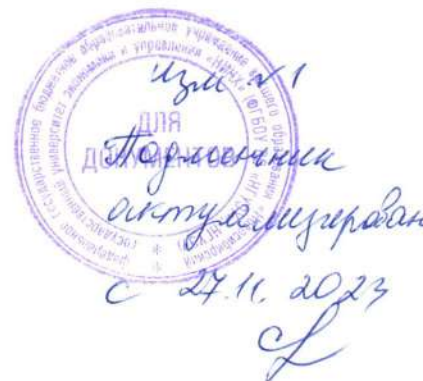 федеральное государственное бюджетное образовательное учреждение высшего образования «Новосибирский
государственный университет экономики и управления «НИНХ» (ФГБОУ ВО «НГУЭУ», НГУЭУ)
ДЛЯ
ДОКУМЕНТОВ
Изм №1
Подлинник
актуализирован
с 27.11.2023